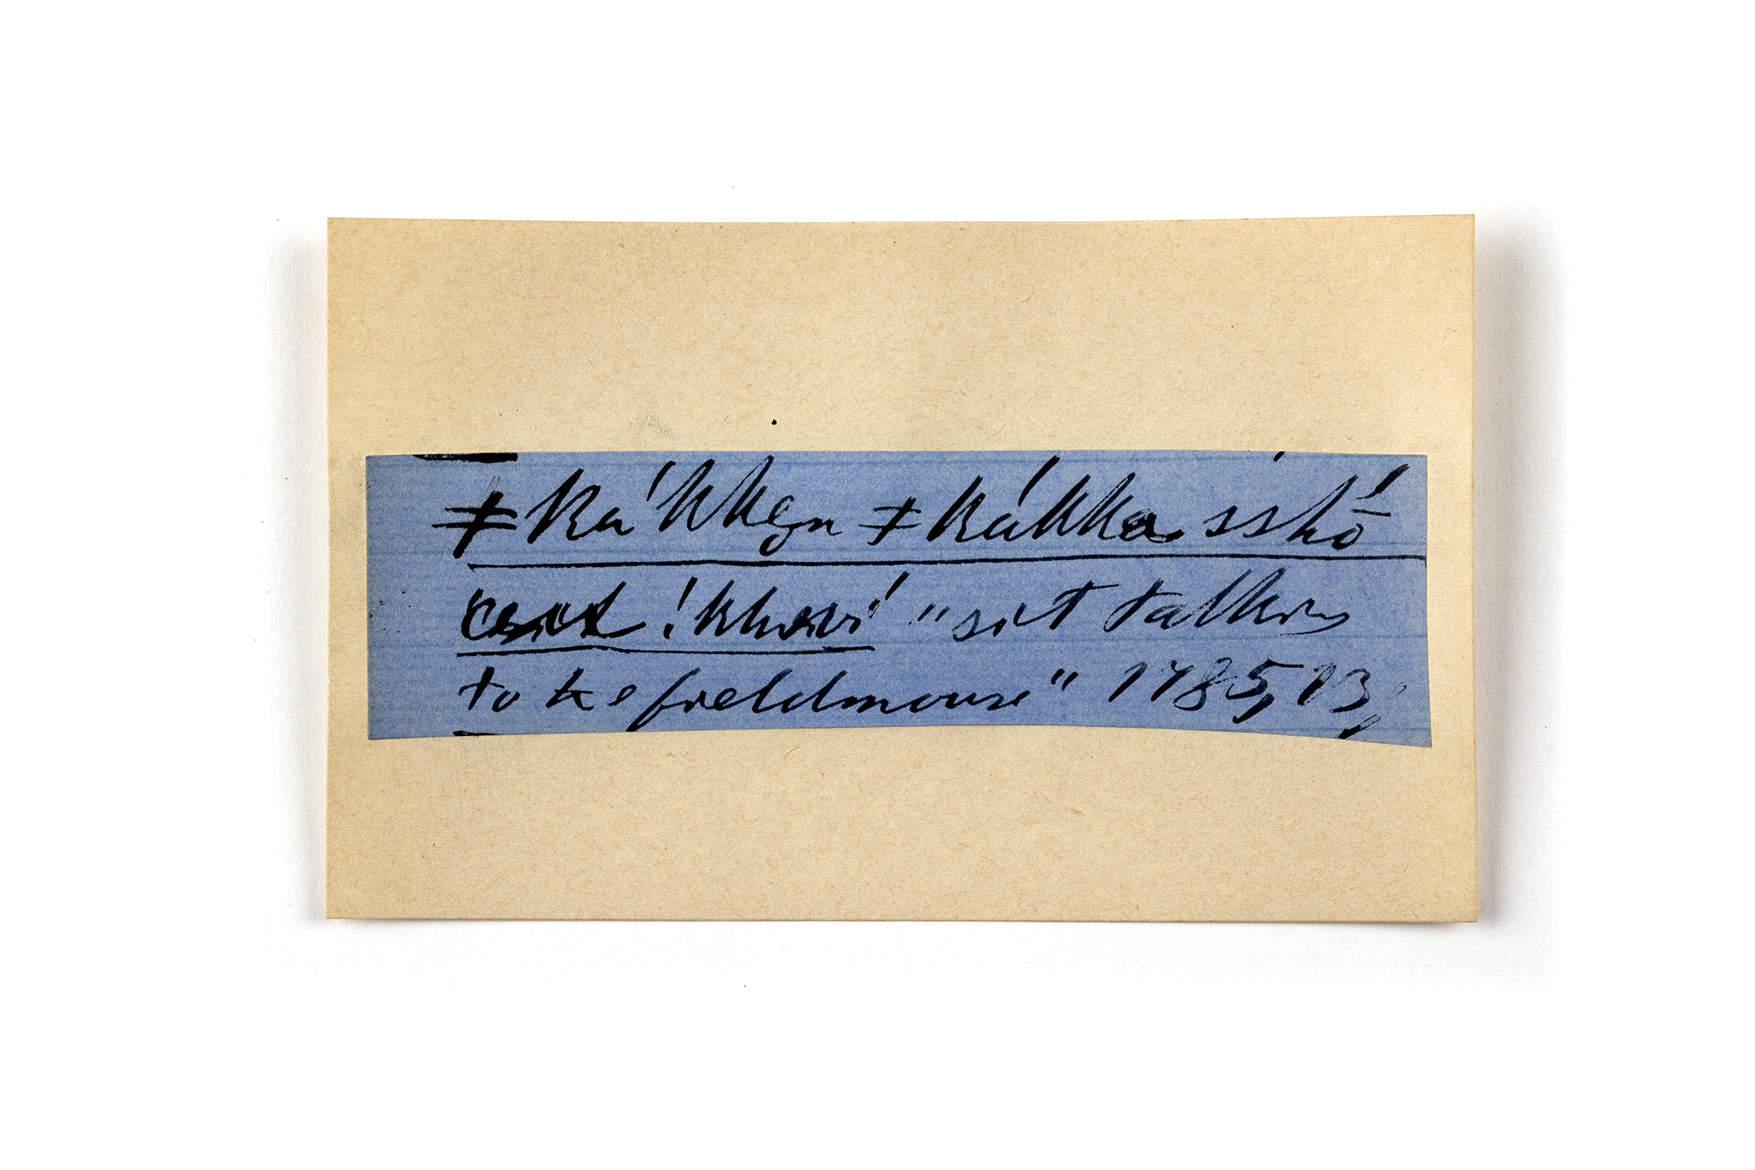 ǂkákken ǂkákka sshŏ́
!khwi "sit talking
to the fieldmouse" 1785, 13,